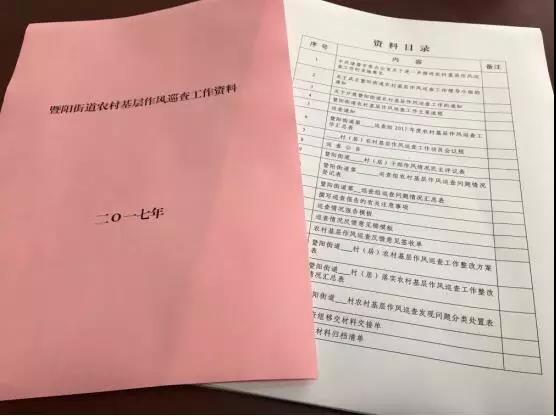 暨阳街道农村基层作风巡查工作资料
二〇一七年
资料目录
序号
内容
备注
1
中共诸暨市委办公室关于进一步推进农村基层作风巡
查工作的实施意见
2
关于成立暨阳街道农村基层作风巡查工作领导小组的
通知
3
关于开展暨阳街道农村基层作风巡查工作的通知
4
暨阳街道农村基层作风巡查工作主要流程
5
巡查通知
6
暨阳街道第__巡查组2017年度农村基层作风巡查工
作汇总表
__村(居)农村基层作风巡查工作动员会议程
巡查公告
暨阳街道__村(居)干部作风情况民主评议表
暨阳街道第__巡查组农村基层作风巡查问题情况
登记表
暨阳街道第__巡查组巡查问题情况汇总表
撰写巡查报告的有关注意事项
巡查情况报告模板
巡查情况反馈意见稿模板
农村基层作风巡查反馈意见签收单
暨阳街道__村(居)农村基层作风巡查工作整改方案
表
暨阳街道__村(居)落实农村基层作风巡查工作整改
情况汇总表
暨阳街道__村农村基层作风巡查发现问题分类处置表
查组移交材料交接单
材料归档清单